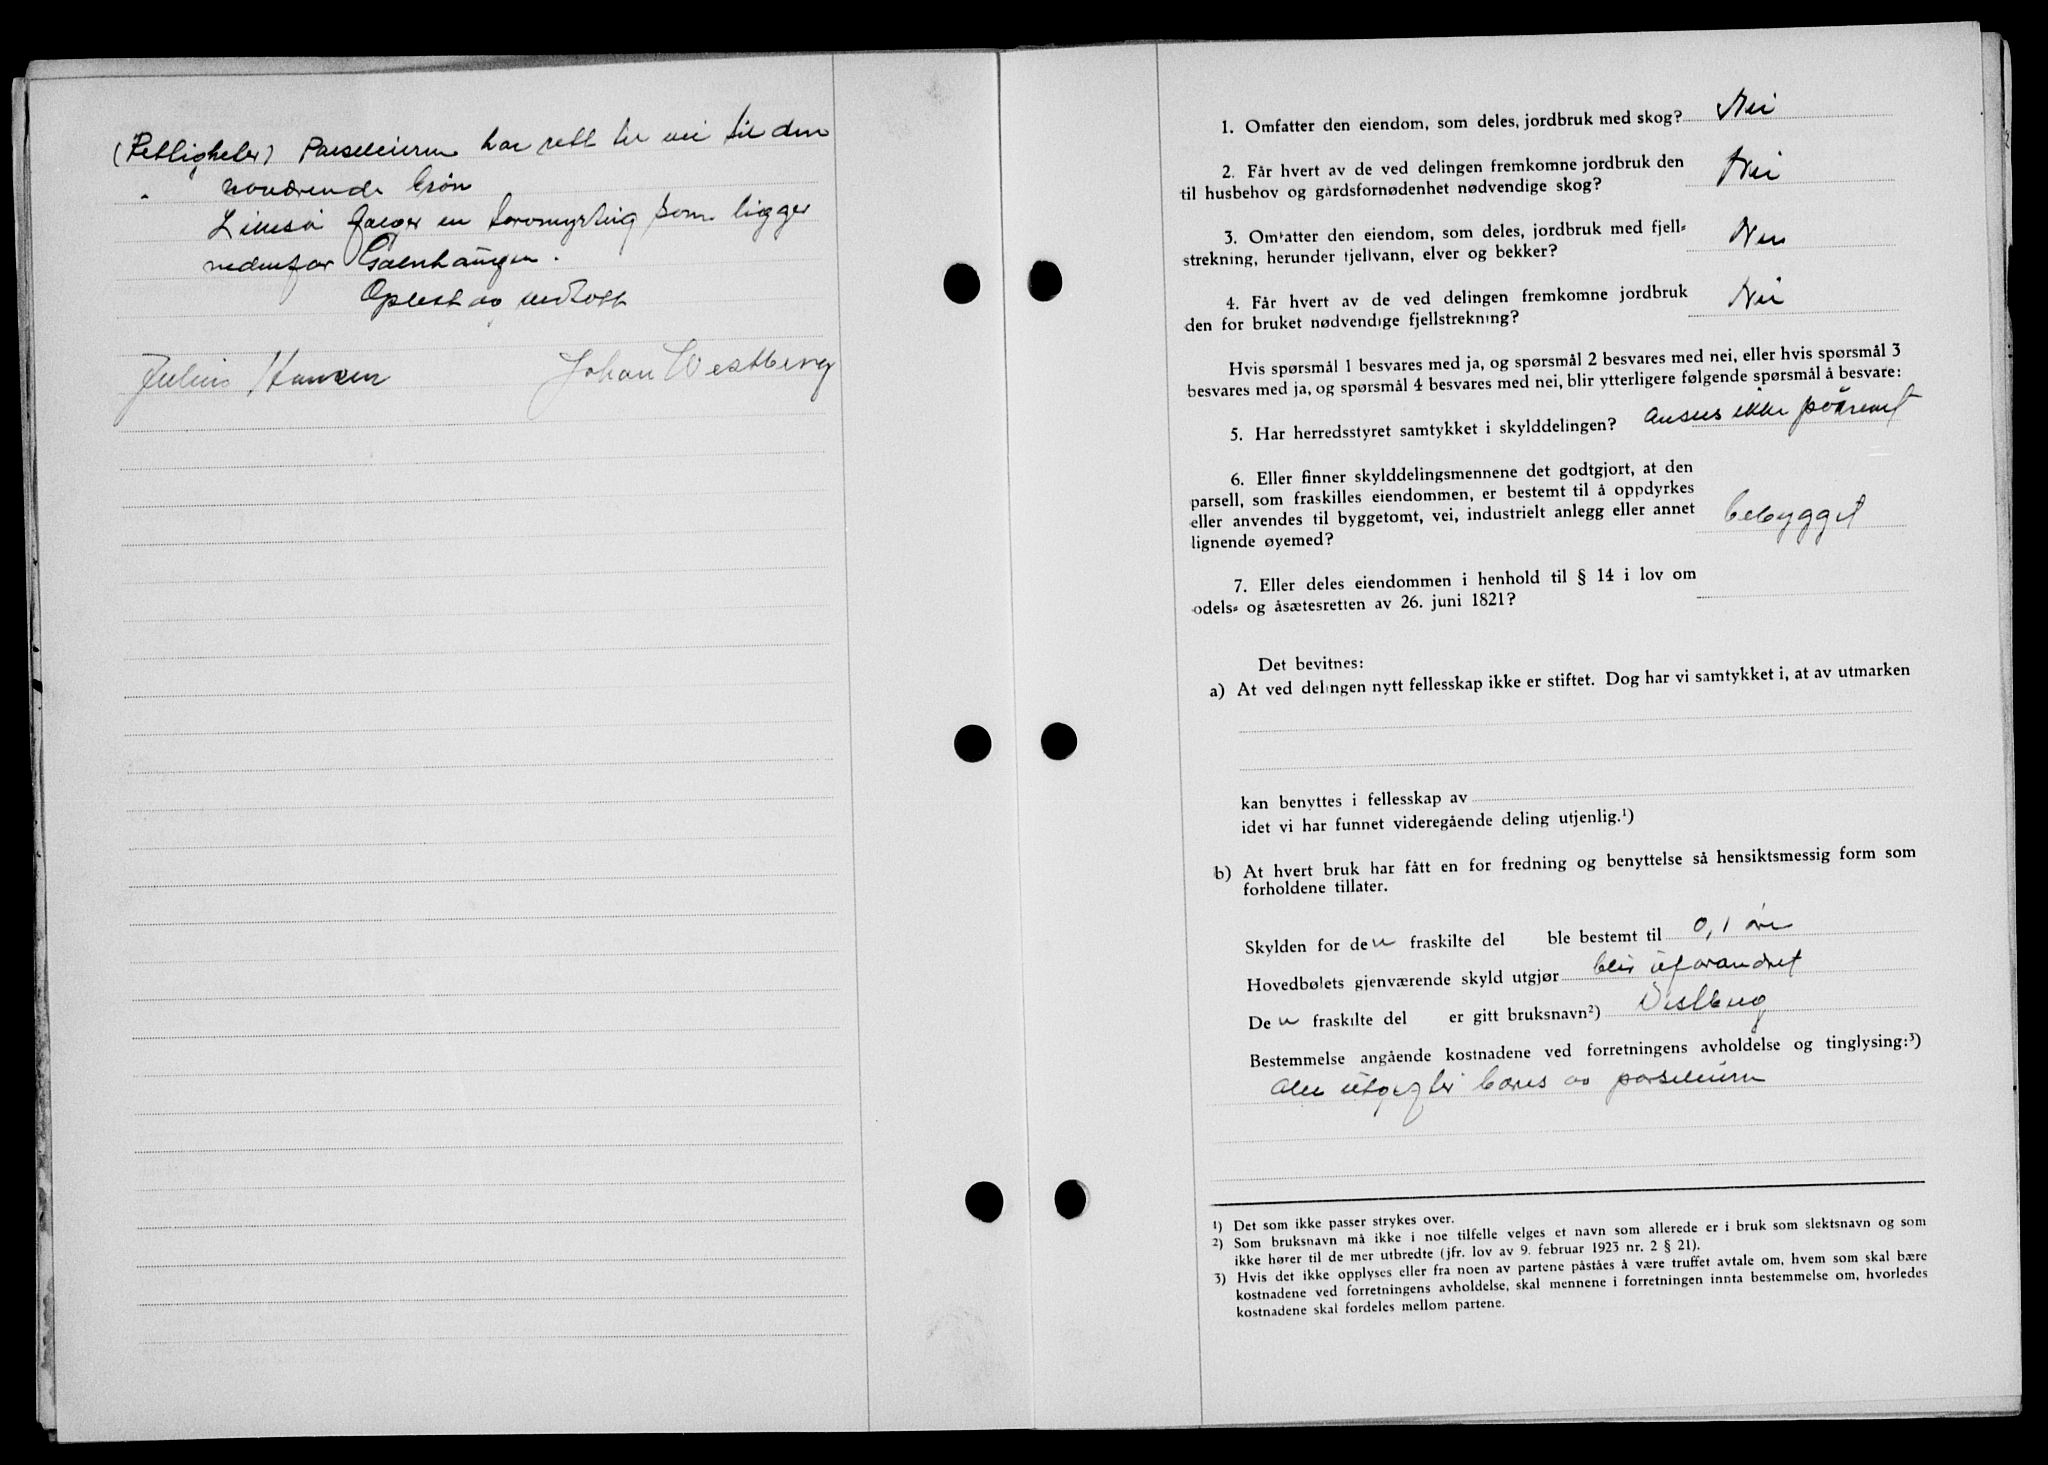 (Rettigheter) Parseleieren har rett til vei til den
nærværende brøn
Likeså følger en torvmyrteig som ligger
nedenfor
Oplest og vedtatt
Julius Hansen Johan Westberg
1. Omfatter den eiendom, som deles, jordbruk med skog? Nei
2. Får hvert av de ved delingen fremkomne jordbruk den
til husbehov og gårdsfornødenhet nødvendige skog? Nei
3. Omfatter den eiendom, som deles, jordbruk med fjell-
strekning, herunder fjellvann, elver og bekker? Nei
4. Får hvert av de ved delingen fremkomne jordbruk
den for bruket nødvendige fjellstrekning? Nei
Hvis spørsmål 1 besvares med ja, og spørsmål 2 besvares med nei, eller hvis spørsmål 3
besvares med ja, og spørsmål 4 besvares med nei, blir ytterligere følgende spørsmål å besvare:
5. Har herredsstyret samtykket i skylddelingen? Anses ikke påkrevet
6. Eller finner skylddelingsmennene det godtgjort, at den
parsell, som fraskilles eiendommen, er bestemt til å oppdyrkes
eller anvendes til byggetomt, vei, industrielt anlegg eller annet
lignende øyemed? bebygget
7. Eller deles eiendommen i henhold til § 14 i lov om
odels- og åsætesretten av 26. juni 1821?
Det bevitnes:
a) At ved delingen nytt fellesskap ikke er stiftet. Dog har vi samtykket i, at av utmarken
kan benyttes i fellesskap av
idet vi har funnet videregående deling utjenlig.¹)
b) At hvert bruk har fått en for fredning og benyttelse så hensiktsmessig form som
forholdene tillater.
Skylden for den fraskilte del ble bestemt til 0,1 øre
Hovedbølets gjenværende skyld utgjør blir uforandret
Den fraskilte del er gitt bruksnavn²) Vestberg
Bestemmelse angående kostnadene ved forretningens avholdelse og tinglysing:³)
Alle utgifter bæres av parseleieren
¹) Det som ikke passer strykes over.
²) Som bruksnavn må ikke i noe tilfelle velges et navn som allerede er i bruk som slektsnavn og som
ikke hører til de mer utbredte (jfr. lov av 9. februar 1923 nr. 2 § 21).
³) Hvis det ikke opplyses eller fra noen av partene påståes å være truffet avtale om, hvem som skal bære
kostnadene ved forretningens avholdelse, skal mennene i forretningen innta bestemmelse om, hvorledes
kostnadene skal fordeles mellom partene.